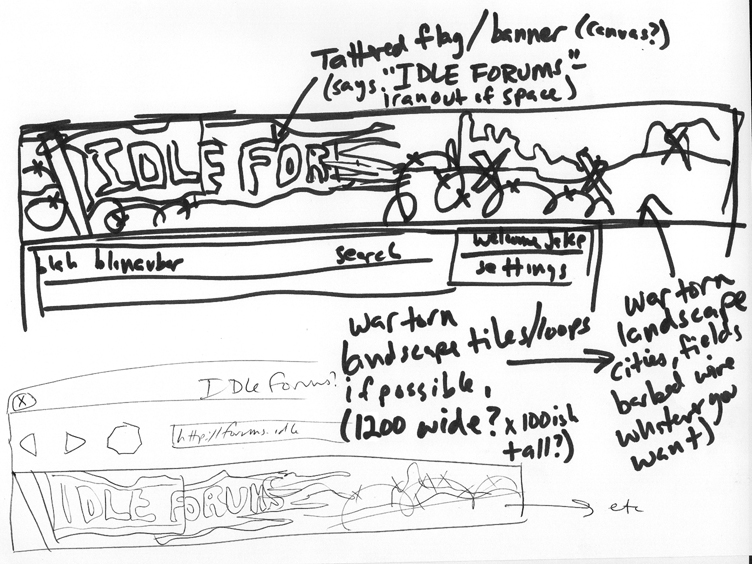 Tattered flag/banner (canvas?)
(says "IDLE FORUMS"-
i ran out of space)
IDLE FOR
blah
search
Welcome
settings
war torn
landscape tiles/loops
if possible,
(1200 wide? x 100ish
tall?)
war torn
landscape
cities, fields
barbed wire
whatever you
want)
IDle Forums?
X
http://forums.idle
IDLE FORUMS
etc